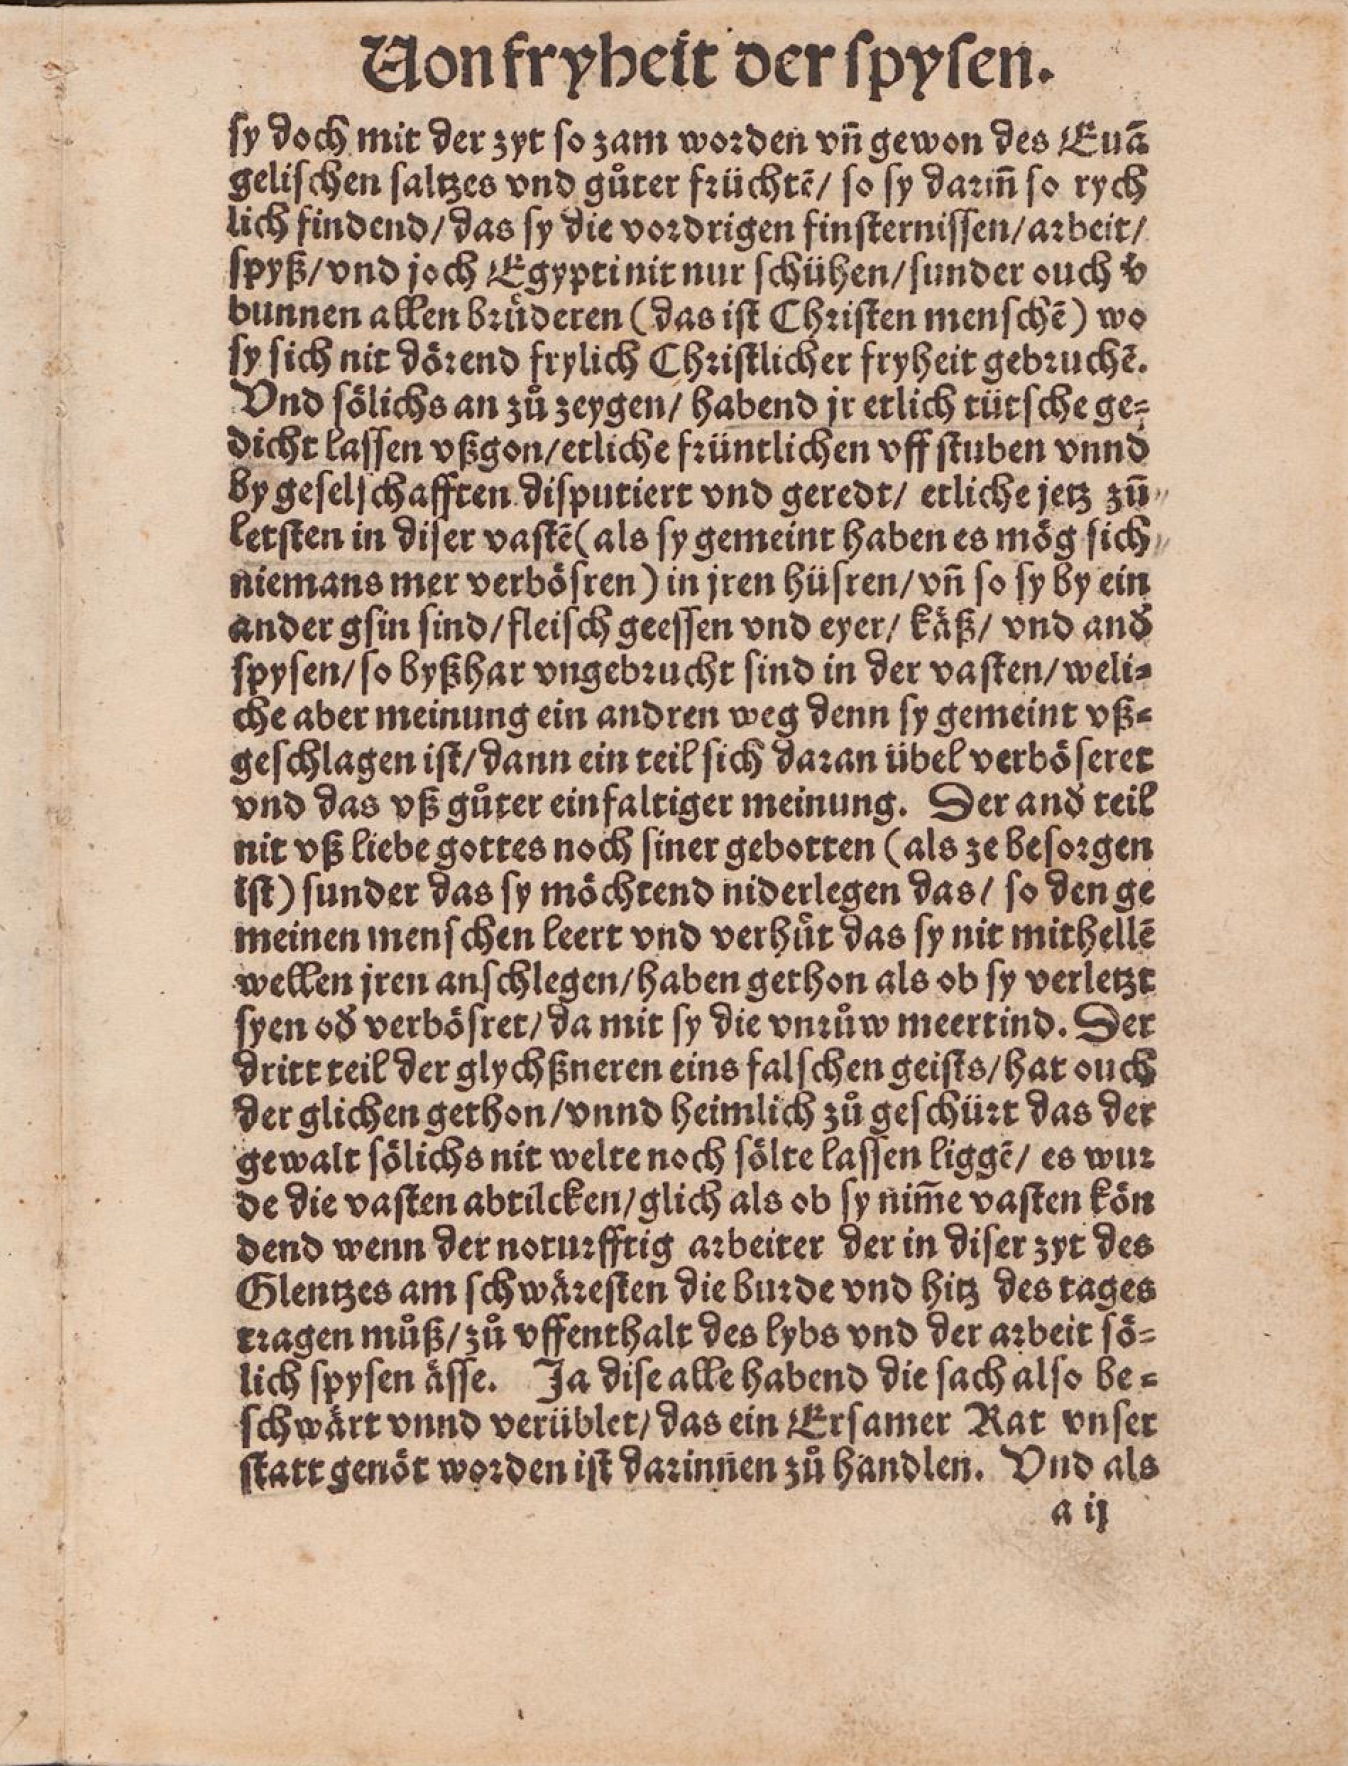 Von fryheit der spysen.
sy doch mit der zyt so zam worden vn̄ gewon des Euā
gelischen saltzes vnd gůter früchtē/ so sy darin̄ so rych
lich findend/das sy die vordrigen finsternissen/arbeit/
spyß/vnd joch Egypti nit nur schühen/sunder ouch v̓
bunnen allen brüderen (das ist Christen menschē) wo
sy sich nit dörend frylich Christlicher fryheit gebruchē.
Vnd sölichs an zů zeygen/ habend jr etlich tütsche ge⸗
dicht lassen vßgon/etliche früntlichen vff stuben vnnd
by geselschafften disputiert vnd geredt/ etliche jetz zū
letsten in diser vastē(als sy gemeint haben es mög sich
niemans mer verbösren) in jren hüsren/vn̄ so sy by ein
ander gsin sind/fleisch geessen vnd eyer/ käß/ vnd and̓
spysen/so byßhar vngebrucht sind in der vasten/weli⸗
che aber meinung ein andren weg denn sy gemeint vß⸗
geschlagen ist/dann ein teil sich daran übel verböseret
vnd das vß gůter einfaltiger meinung. Der and̓ teil
nit vß liebe gottes noch siner gebotten (als ze besorgen
ist) sunder das sy möchtend niderlegen das/ so den ge
meinen menschen leert vnd verhůt das sy nit mithellē
wellen jren anschlegen/haben gethon als ob sy verletzt
syen od̓ verbösret/da mit sy die vnrůw meertind. Der
dritt teil der glychßneren eins falschen geists/hat ouch
der glichen gethon/vnnd heimlich zů geschürt das der
gewalt sölichs nit welte noch sölte lassen liggē/ es wur
de die vasten abtilcken/glich als ob sy nim̄e vasten kön
dend wenn der noturfftig arbeiter der in diser zyt des
Glentzes am schwäresten die burde vnd hitz des tages
tragen můß/zů vffenthalt des lybs vnd der arbeit sö⸗
lich spysen ässe. Ja dise alle habend die sach also be⸗
schwärt vnnd verüblet/das ein Ersamer Rat vnser
statt genöt worden ist darinnen zů handlen. Vnd als
a ij